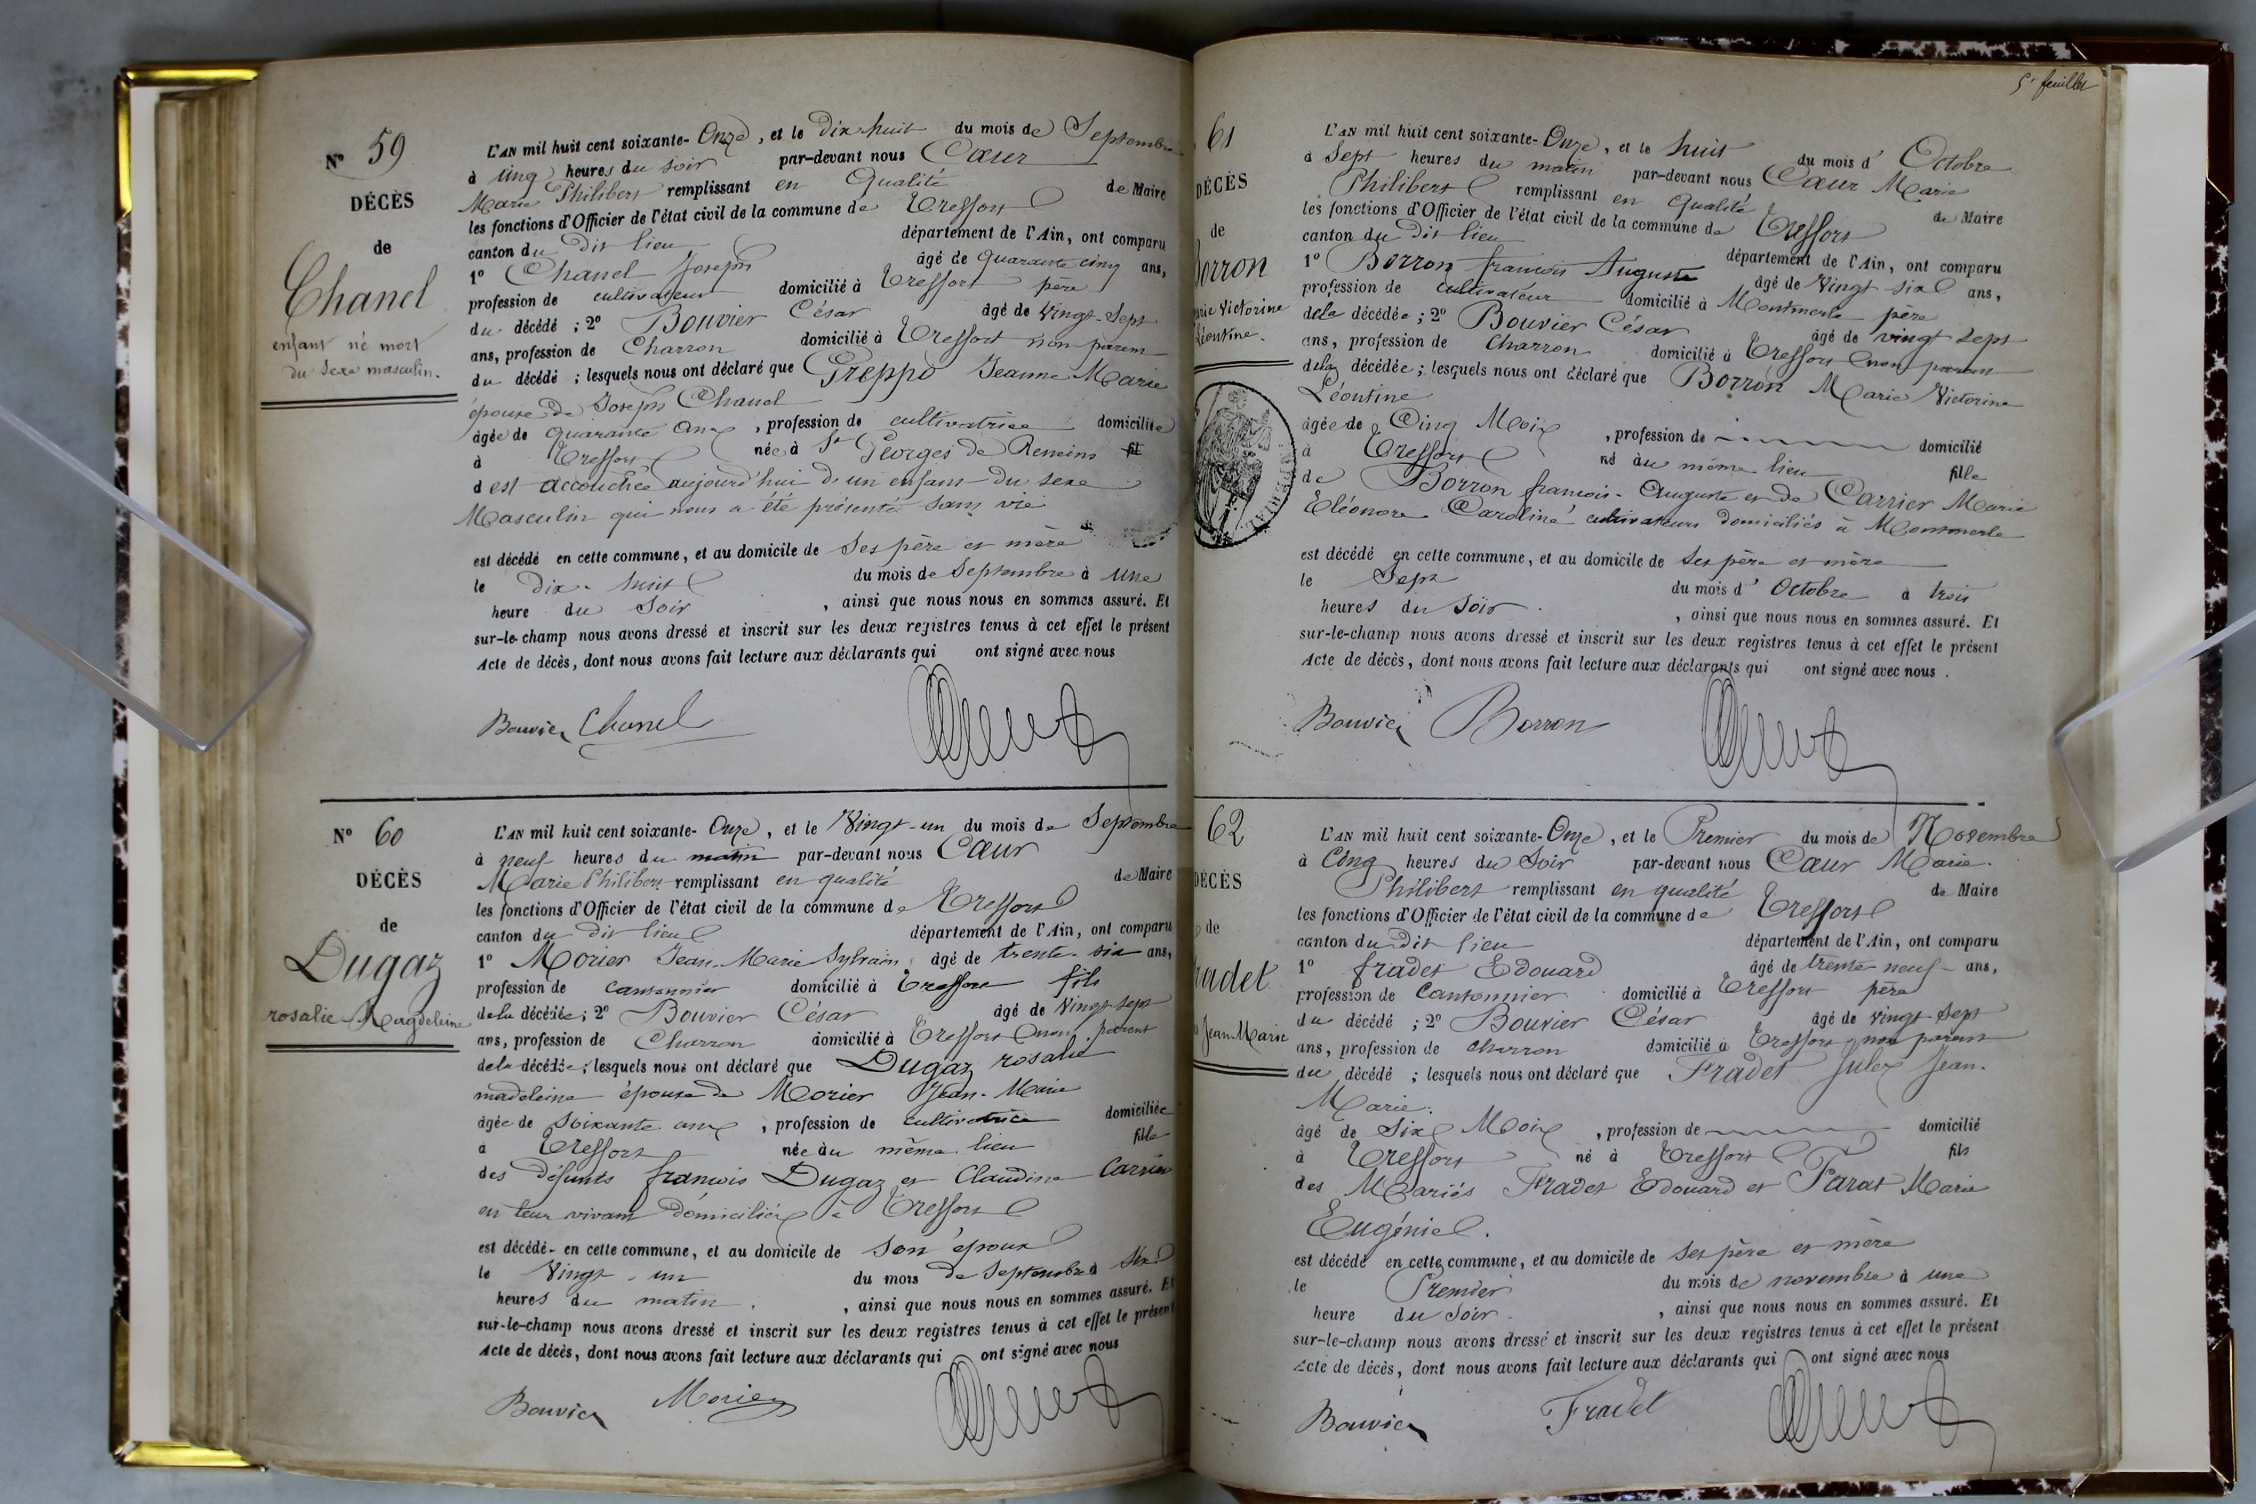 Nº 59
DÉCÈS
de
Chanel
enfant né mort
du sexe masculin.
L'AN mil huit cent soixante-Onze, et le dix huit du mois de Septembre
à cinq heures du soir par-devant nous Cœur
Marie Philibert remplissant en qualité de Maire
les fonctions d'Officier de l'état civil de la commune de Treffort
canton du dit lieu département de l'Ain, ont comparu
1º Chanel Joseph âgé de quarante cinq ans,
profession de cultivateur domicilié à Treffort père
du décédé ; 2º Bouvier César âgé de vingt-sept
ans, profession de Charron domicilié à Treffort non parent
du décédé ; lesquels nous ont déclaré que Greppo Jeanne Marie
épouse de Joseph Chanel
âgée de quarante ans, profession de cultivatrice domiciliée
à Treffort née à St Georges de Reneins fil
d est accouchée aujourd'hui d'un enfant du sexe
Masculin qui nous a été présenté sans vie
est décédé en cette commune, et au domicile de ses père et mère
le dix-huit du mois de Septembre à une
heure du soir, ainsi que nous nous en sommes assuré. Et
sur-le-champ nous avons dressé et inscrit sur les deux registres tenus à cet effet le présent
Acte de décès, dont nous avons fait lecture aux déclarants qui ont signé avec nous
Bouvier Chanel
Nº 60
DÉCÈS
de
Dugaz
rosalie Magdeleine
L'AN mil huit cent soixante-Onze, et le Vingt-un du mois de Septembre
à neuf heures du matin par-devant nous Cœur
Marie Philibert remplissant en qualité de Maire
les fonctions d'Officier de l'état civil de la commune de Treffort
canton du dit lieu département de l'Ain, ont comparu
1º Morier Jean-Marie Sylvain âgé de trente-six ans,
profession de cantonnier domicilié à Treffort fils
de la décédée ; 2º Bouvier César âgé de vingt-sept
ans, profession de Charron domicilié à Treffort non parent
de la décédée ; lesquels nous ont déclaré que Dugaz rosalie
madeleine épouse de Morier Jean-Marie
âgée de soixante ans, profession de cultivatrice domiciliée
à Treffort née au même lieu fille
des défunts francois Dugaz et Claudine Carrier
en leur vivant domiciliés à Treffort
est décédé en cette commune, et au domicile de son époux
le Vingt-un du mois de Septembre à six
heures du matin, ainsi que nous nous en sommes assuré. Et
sur-le-champ nous avons dressé et inscrit sur les deux registres tenus à cet effet le présent
Acte de décès, dont nous avons fait lecture aux déclarants qui ont signé avec nous
Bouvier Morier
5e feuillet
61
DÉCÈS
de
Borron
Marie Victorine
Léontine.
L'AN mil huit cent soixante-Onze, et le huit du mois d'Octobre
à Sept heures du matin par-devant nous Cœur Marie
Philibert remplissant en qualité de Maire
les fonctions d'Officier de l'état civil de la commune de Treffort
canton du dit lieu département de l'Ain, ont comparu
1º Borron francois Auguste âgé de Vingt six ans,
profession de cultivateur domicilié à Montmerle père
de la décédée ; 2º Bouvier César âgé de vingt sept
ans, profession de Charron domicilié à Treffort non parent
de la décédée ; lesquels nous ont déclaré que Borron Marie Victorine
Léontine
âgée de Cinq Mois, profession de domicilié
à Treffort né au même lieu fille
de Borron francois-Auguste et de Carrier Marie
Eléonore Caroline cultivateurs domiciliés à Montmerle
est décédé en cette commune, et au domicile de ses père et mère
le Sept du mois d'Octobre à trois
heures du soir, ainsi que nous nous en sommes assuré. Et
sur-le-champ nous avons dressé et inscrit sur les deux registres tenus à cet effet le présent
Acte de décès, dont nous avons fait lecture aux déclarants qui ont signé avec nous.
Bouvier Borron
62
DÉCÈS
de
Fradet
Jean Marie
L'AN mil huit cent soixante-Onze, et le Premier du mois de Novembre
à Cinq heures du Soir par-devant nous Cœur Marie
Philibert remplissant en qualité de Maire
les fonctions d'Officier de l'état civil de la commune de Treffort
canton du dit lieu département de l'Ain, ont comparu
1º fradet Edouard âgé de trente neuf ans,
profession de Cantonnier domicilié à Treffort père
du décédé ; 2º Bouvier César âgé de vingt-sept
ans, profession de charron domicilié à Treffort non parent
du décédé ; lesquels nous ont déclaré que Fradet Jules Jean-
Marie.
âgé de six Mois, profession de domicilié
à Treffort né à Treffort fils
des Mariés Fradet Edouard et Farat Marie
Eugénie.
est décédé en cette commune, et au domicile de ses père et mère
le Premier du mois de novembre à une
heure du Soir, ainsi que nous nous en sommes assuré. Et
sur-le-champ nous avons dressé et inscrit sur les deux registres tenus à cet effet le présent
Acte de décès, dont nous avons fait lecture aux déclarants qui ont signé avec nous
Bouvier Fradet